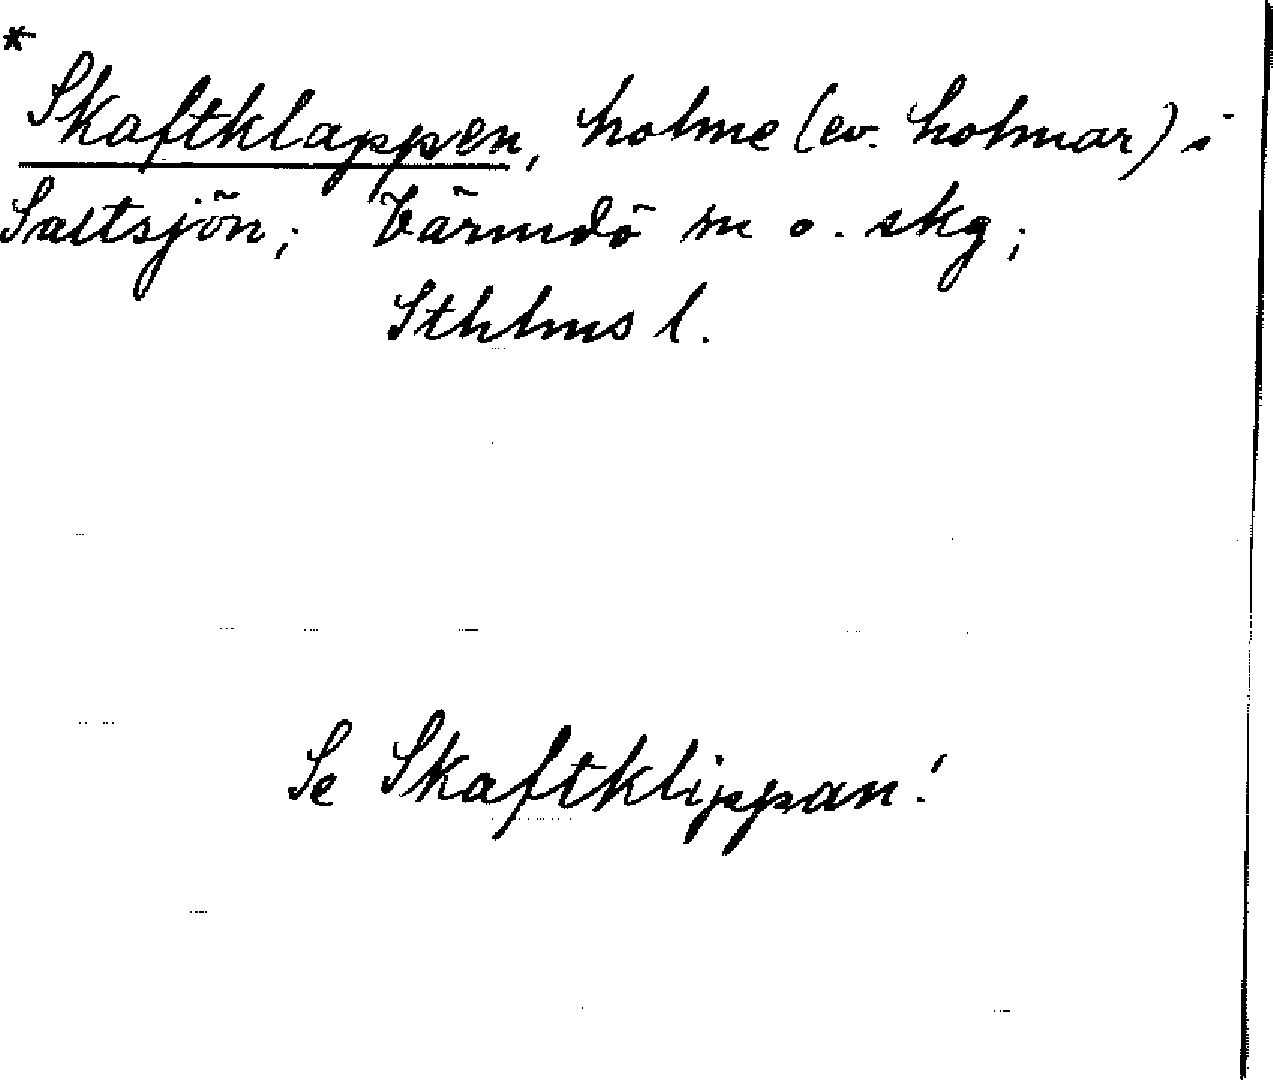 *
Skaftklappen, holme (ev. holmar) i
Saltsjön; Värmdö sn o. skg;
Sthlms l.
Se Skaftklippan!